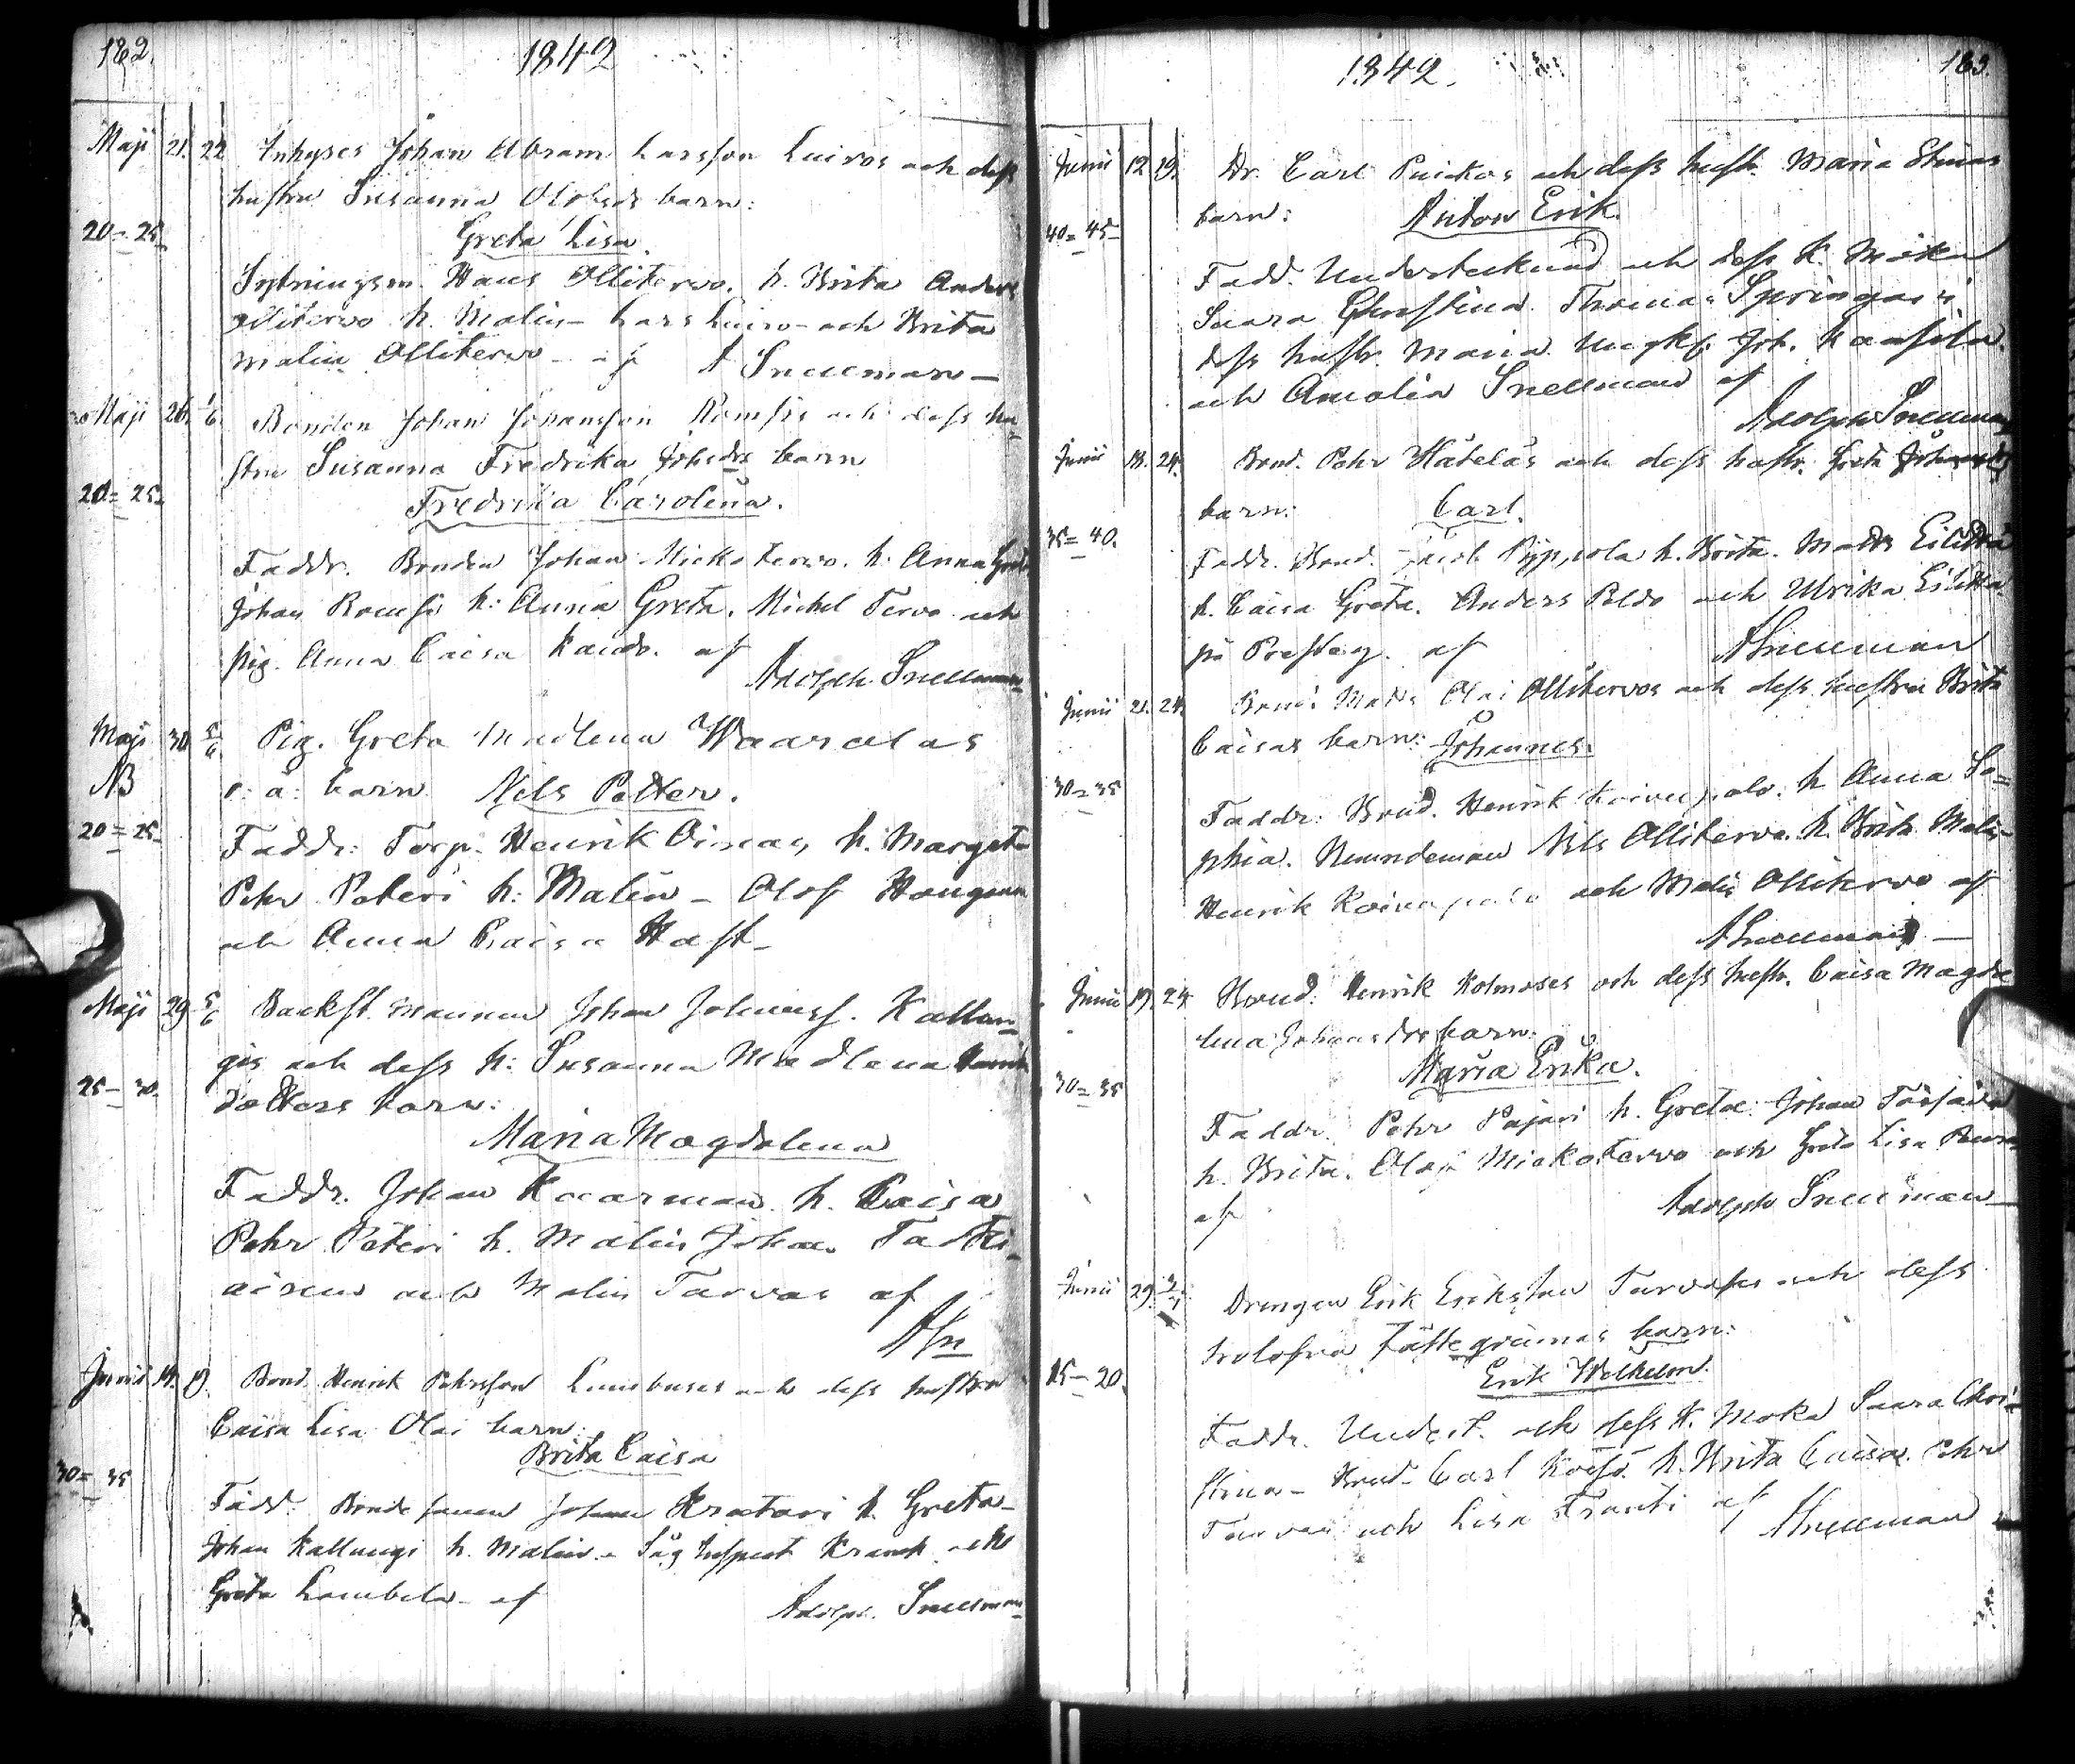 162.
1842
Maji 21. 22 Inhyses Johan Abram Larsson Luiros och dess
hustru Susanna Olofsdr barn:
20=25 Greta Lisa
Sytningsm. Hans Ollitervo. h. Brita Anders
Ollitervo h. Malin - Lars Luiro - och Brita
Malin Ollitervo - af A Snellman -
Maji 26. 1/6 Bonden Johan Johansson Romsis och dess hu-
stru Susanna Fredrika Johsdrs barn
20=25 Fredrika Carolina.
Faddr. Bonden Johan Mickotervo. h. Anna Greta
Johan Romsi h: Anna Greta. Michel Tervo och
pig. Anna Caisa af
Adolph Snellman
Maji 30 5/6 Pig. Greta Madlena Waaralas
NB o: ä: barn Nils Petter.
20=25 Faddr: Torp. Henrik Oinas, h. Margeta
Pehr Peteri h: Malin - Olof
och Anna Caisa Hast -
Maji 29 5/6 Backst. mannen Johan Johanss. Kallun-
gis och dess h: Susanna Madlena Henriks
25-30. dotters barn:
Maria Magdalena
Faddr. Johan Kaarman h. Caisa
Pehr Peteri h. Malin Johan
och Malin Tarvas af
ASn
Junii 14. 19. Bond. Henrik Pehrsson och dess hustru
Caisa Lisa Olai barn:
Brita Caisa
30=35
Fadd. Bonde sonen Johan Kratari h. Greta -
Johan Kallungi h. Malin - Såg Inspect Kranck och
Greta Lambela - af Adolph. Snellman
1842.
163.
Junii 12 19. Dr. Carl Puickos och dess hustr. Maria Stinas
barn: Anton Erik.
40=45
Fadd. Undertecknad och dess K. Maka
Saara Christina. Thomas Springar
dess hustr. Maria. Ungk. Joh. Kansila
och Amalia Snellman af
Adolph Snellman
Junii 18. 24. Bond. Pehr Häteläs och dess hustr. Greta
barn: Carl.
35=40.
Faddr. Bond. Jacob Pyppola h. Brita. Matts Eilittä
h. Caisa Greta. Anders Poldo och Ulrika Eilittä
på Prestg. af ASnellman
Junii 21. 24. Bond. Matts Olai Ollitervos och dess hustru Brita
Caisas barn: Johannes.
30=35
Faddr: Bond. Henrik Koivupalo. h Anna So=
phia. Nämndeman Nils Ollitervo. h. Brita Malin
Henrik Koivupalo och Malin Ollitervo af
ASnellman -
Junii 19. 24 Bond. Henrik Kolmoses och dess hustr. Caisa Magda
lena Johansdrs barn:
Maria Erika.
30=35
Faddr. Pehr Pajari h. Greta Johan
h. Brita. Olof Mickotervo och Greta Lisa
af Adolph Snellman
Junii 29. Drengen Erik Eriksson Tarvases och dess
trolofva barn:
Erik Wilhelm.
15-20.
Faddr. Undert. och dess K. Maka Saara Chri-
stina - Bond. Carl h. Brita Caisa. Pehr
Tarvas och Lisa Franti af ASnellman